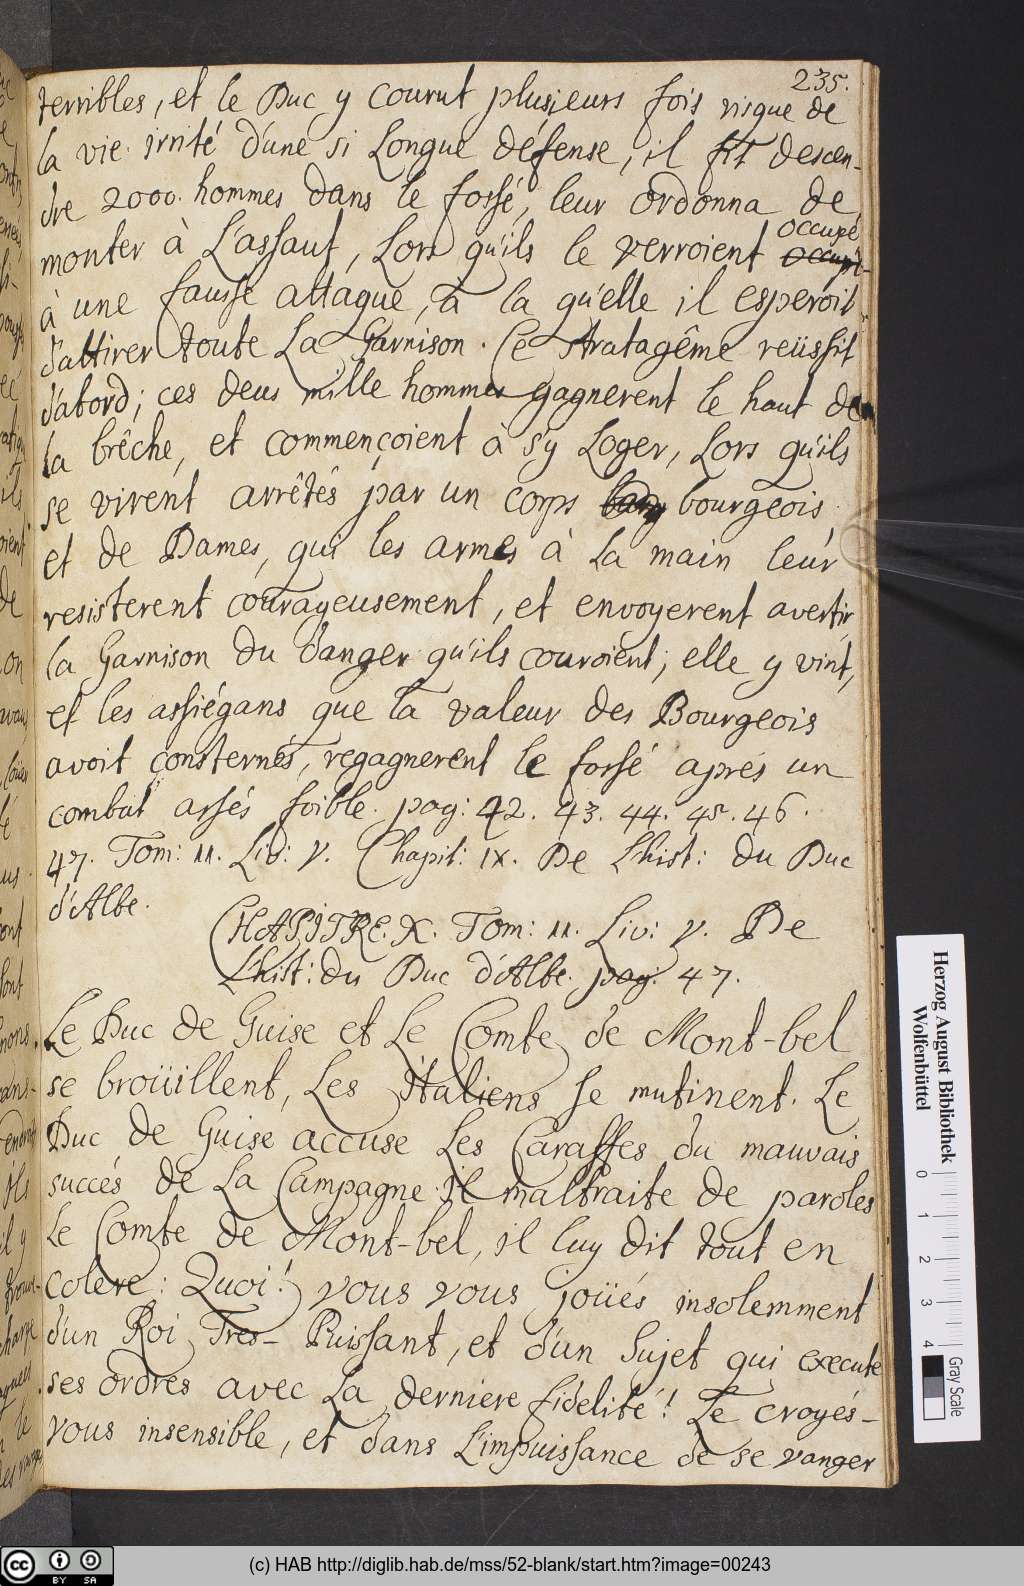 235.
terribles, et le Duc y courut plusieurs fois risque de
la vie. irrité d'une si Longue défense, il fit descen-
dre 2000. hommes dans le fossé, leur ordonna de
monter à L'assaut, Lors qu'ils le verroient occupé
à une fausse attaque, à la qu'elle il esperoit
d'attirer toute La Garnison. Ce stratagême reüssit
d'abord; ces deus mille hommes gagnerent le haut de
la brêche, et commençoient à s'y Loger, Lors qu'ils
se virent arrêtés par un corps bourgeois
et de Dames, qui les armes à La main leur
resisterent courageusement, et envoyerent avertir
la Garnison du danger qu'ils couroient; elle y vint,
et les assiégans que la valeur des Bourgeois
avoit consternés, regagnerent le fossé aprés un
combat assés foible. pag: 42. 43. 44. 45. 46.
47. Tom: 11. Liv: V. Chapit: IX. De L'hist: du Duc
d'Albe.
CHAPITRE. X. Tom: 11. Liv: V. De
L'hist: du Duc d'Albe. pag. 47.
Le Duc de Guise et Le Comte de Mont-bel
se broüillent, Les Italiens se mutinent. Le
Duc de Guise accuse Les Caraffes du mauvais
succés de La Campagne. il maltraite de paroles
Le Comte de Mont-bel, il luy dit tout en
colere: Quoi! vous vous joüés insolemment
d'un Roi Tres-Puissant, et d'un Sujet qui execute
ses ordres avec La derniere fidelité! Le croyés-
vous insensible, et dans L'impuissance de se vanger
Herzog August Bibliothek
Wolfenbüttel
0 1 2 3 4
Gray Scale
CC BY SA
(c) HAB http://diglib.hab.de/mss/52-blank/start.htm?image=00243